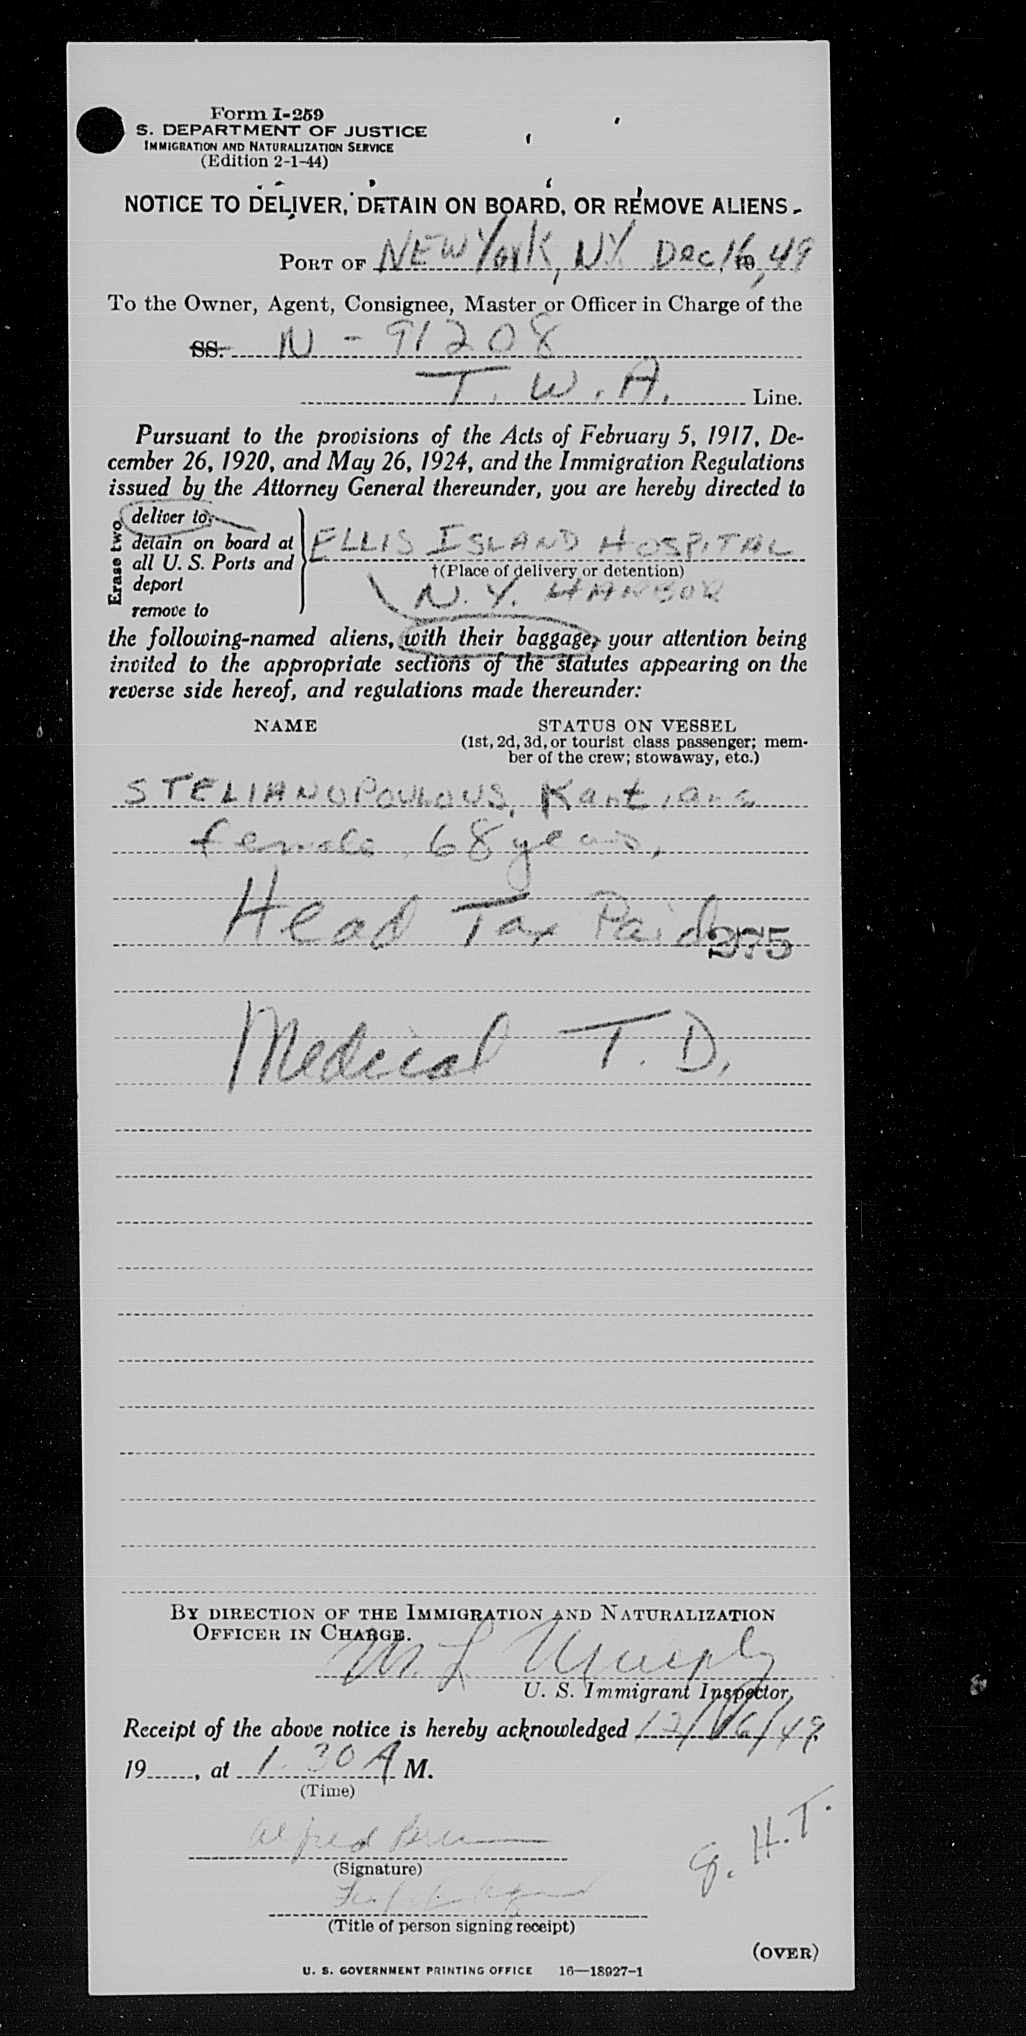 Form I-259
S. DEPARTMENT OF JUSTICE
IMMIGRATION AND NATURALIZATION SERVICE
(Edition 2-1-44)
NOTICE TO DELIVER, DETAIN ON BOARD, OR REMOVE ALIENS
PORT OF NEW York, N.Y. Dec. 16, 49
To the Owner, Agent, Consignee, Master or Officer in Charge of the
SS. N - 91208
T. W. A. Line.
Pursuant to the provisions of the Acts of February 5, 1917, De-
cember 26, 1920, and May 26, 1924, and the Immigration Regulations
issued by the Attorney General thereunder, you are hereby directed to
Erase two
deliver to
detain on board at
all U. S. Ports and
deport
remove to
ELLIS ISLAND HOSPITAL
†(Place of delivery or detention)
N. Y. HARBOR
the following-named aliens, with their baggage, your attention being
invited to the appropriate sections of the statutes appearing on the
reverse side hereof, and regulations made thereunder:
NAME
STATUS ON VESSEL
(1st, 2d, 3d, or tourist class passenger; mem-
ber of the crew; stowaway, etc.)
STELIANOPOULOUS, Kantiana
female, 68 years,
Head Tax Paid
275
Medical T. D.
BY DIRECTION OF THE IMMIGRATION AND NATURALIZATION
OFFICER IN CHARGE.
M. L. Murphy
U. S. Immigrant Inspector.
Receipt of the above notice is hereby acknowledged 12/16/49,
19......, at 1.30 A M.
(Time)
Alfred
(Signature)
(Title of person signing receipt)
H. T.
(OVER)
U. S. GOVERNMENT PRINTING OFFICE 16—18927-1